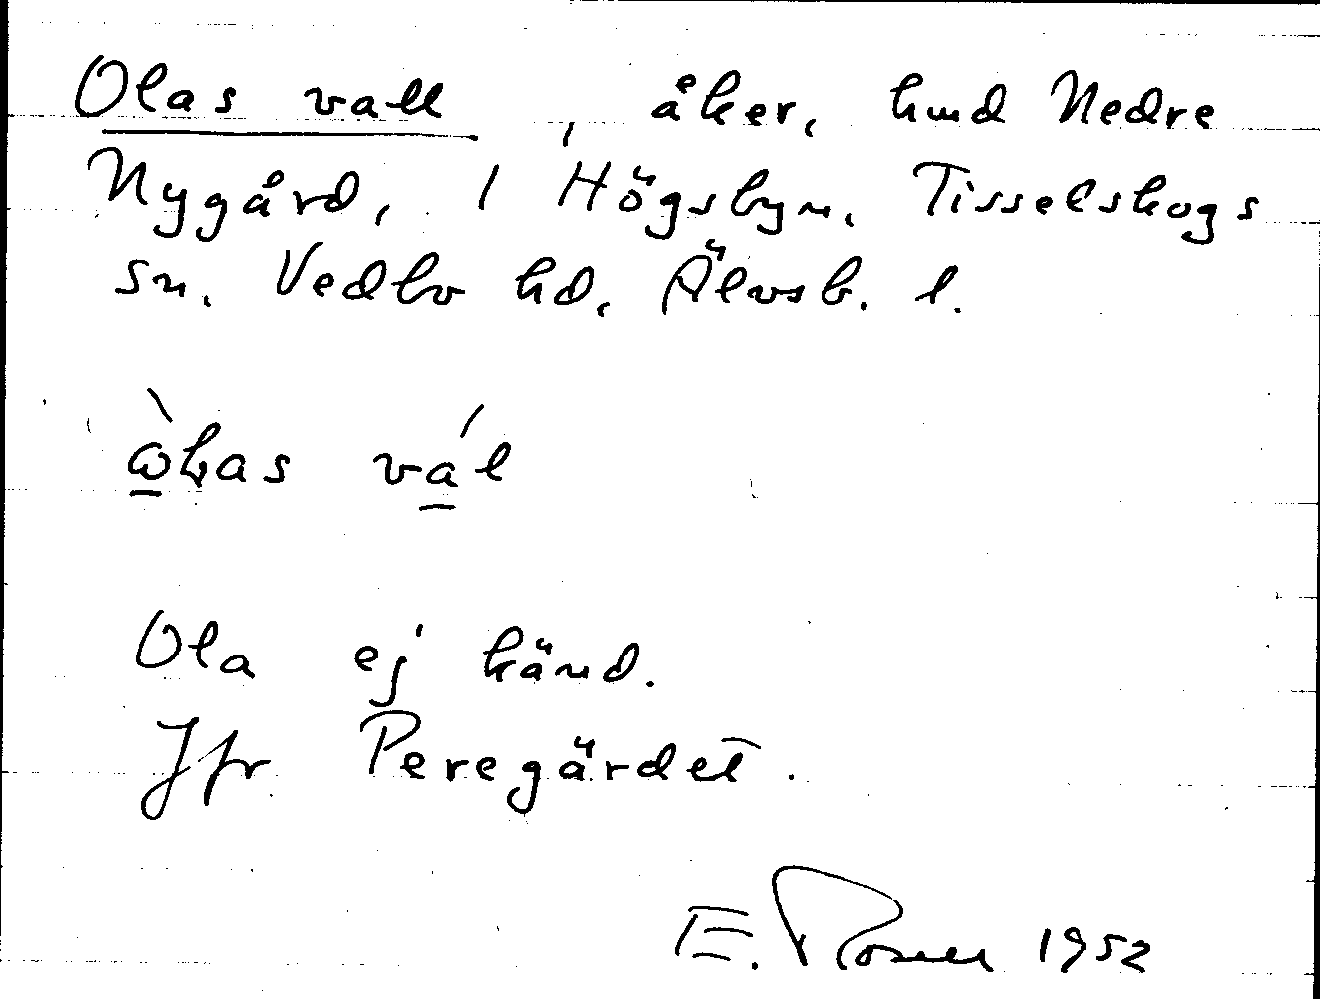 Olas vall, åker, hmd Nedre
Nygård, 1 Högsbyn, Tisselskogs
sn. Vedbo hd, Älvsb. l.
val
Ola ej känd.
Jfr Peregärdet.
E. Rosell 1952